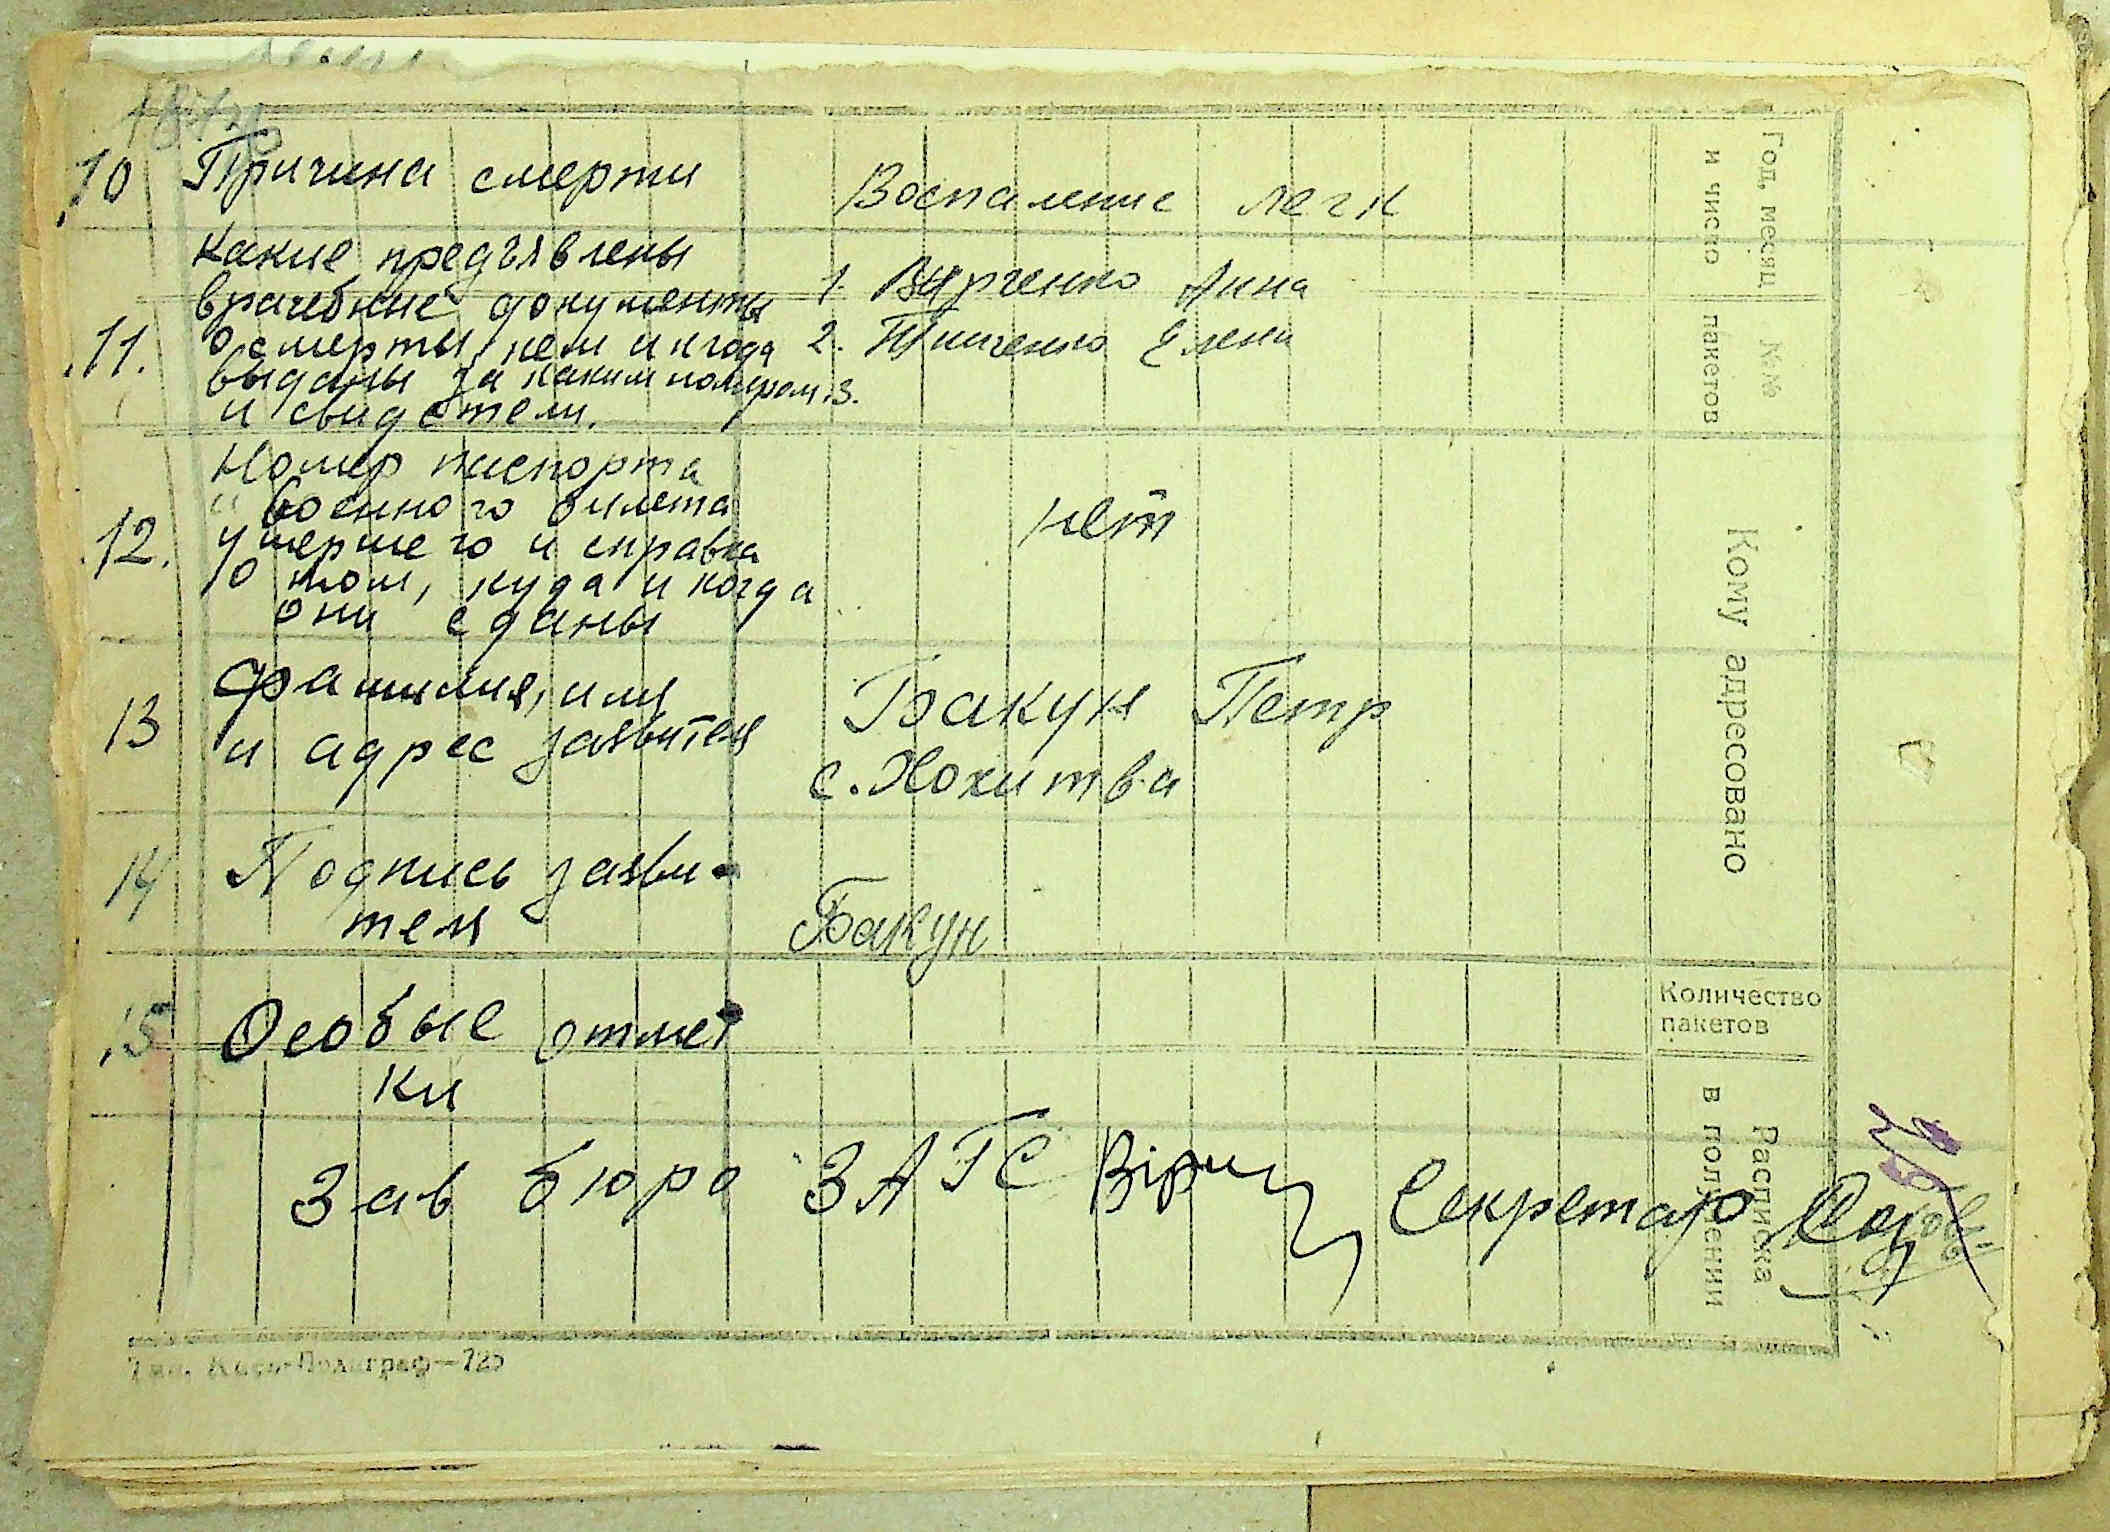 10 Причина смерти Воспаление легк
Какие предъявлены
врачебные документы 1. Анна
11. о смерты кем и когда 2. Тимченко Елена
выданы за каким номером 3.
и свидетели.
Номер паспорта
и военного билета
12. умершего и справка нет
о том, куда и когда
они сданы
13 Фамилия, имя Бакун Петр
и адрес заявителя с. Хохитва
14 Подпись заяви-
теля Бакун
15 Особые отмет
ки
Зав бюро ЗАГС Секретар
Год, месяц
и число
№№
пакетов
Кому адресовано
Количество
пакетов
Расписка
в получении